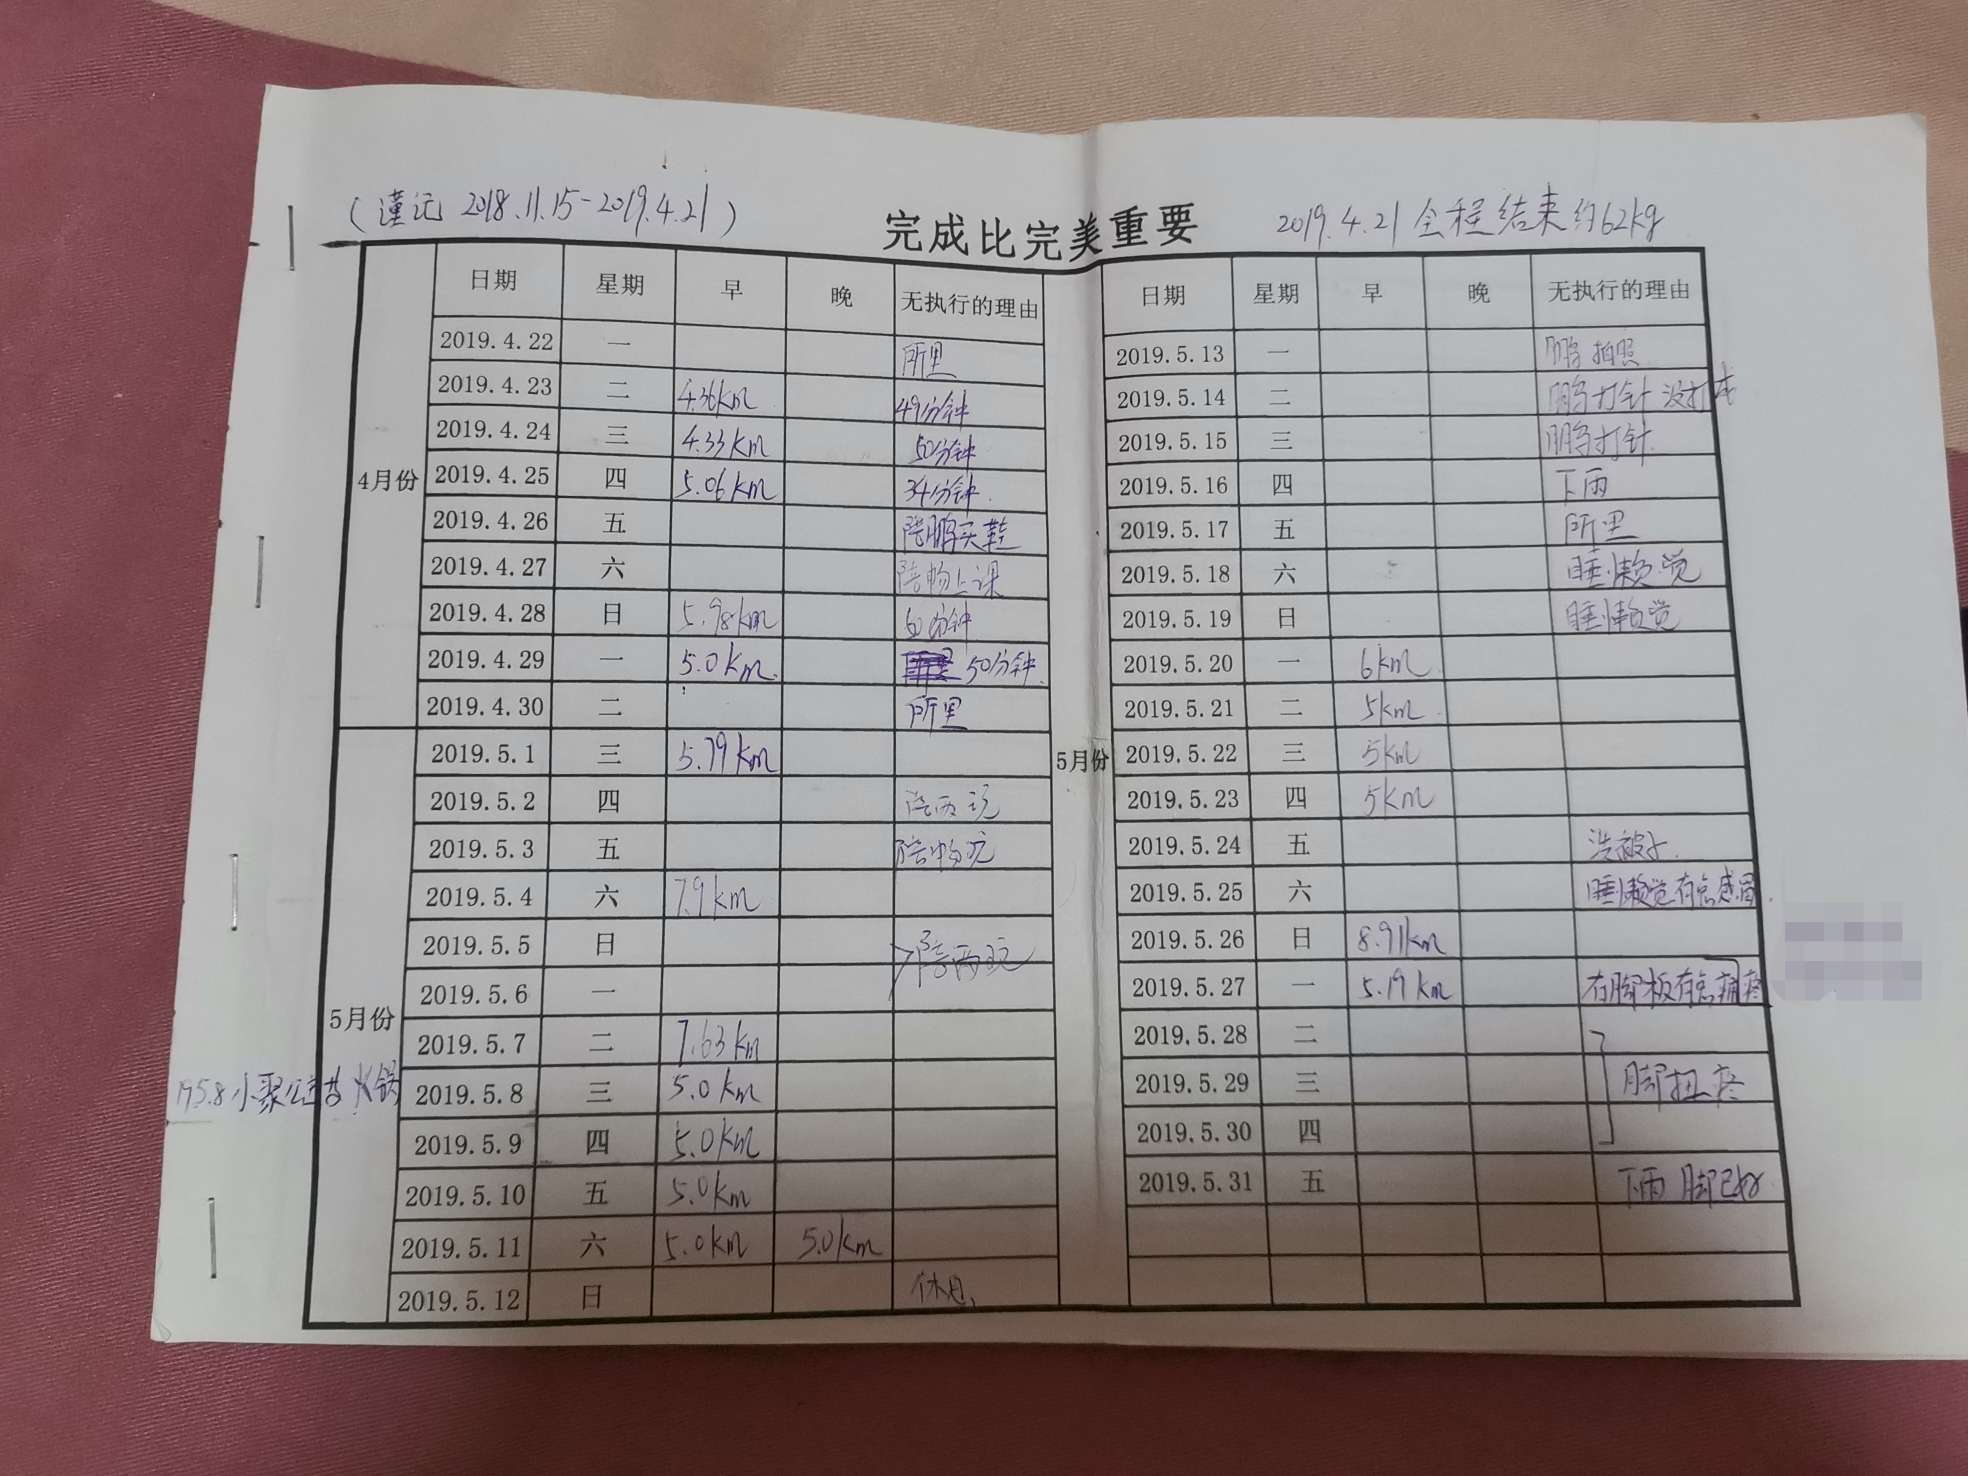 (谨记 2018.11.15-2019.4.21)
完成比完美重要
2019.4.21全程结束约62kg
日期 星期 早 晚 无执行的理由
4月份
2019.4.22 一 所里
2019.4.23 二 4.36km 49分钟
2019.4.24 三 4.33km 50分钟
2019.4.25 四 5.06km 34分钟.
2019.4.26 五 陪鹏买鞋
2019.4.27 六 陪畅上课
2019.4.28 日 5.98km 60分钟
2019.4.29 一 5.0km. 50分钟.
2019.4.30 二 所里
5月份
2019.5.1 三 5.79km
2019.5.2 四 陪两玩
2019.5.3 五 陪畅玩
2019.5.4 六 7.9km
2019.5.5 日 陪两玩
2019.5.6 一
2019.5.7 二 7.63km
19.5.8小聚 火锅
2019.5.8 三 5.0km
2019.5.9 四 5.0km
2019.5.10 五 5.0km
2019.5.11 六 5.0km 5.0km
2019.5.12 日 休息
日期 星期 早 晚 无执行的理由
5月份
2019.5.13 一 鹏拍照
2019.5.14 二 鹏打针 没打成
2019.5.15 三 鹏打针
2019.5.16 四 下雨
2019.5.17 五 所里
2019.5.18 六 睡懒觉
2019.5.19 日 睡懒觉
2019.5.20 一 6km
2019.5.21 二 5km
2019.5.22 三 5km
2019.5.23 四 5km
2019.5.24 五 洗被子.
2019.5.25 六 睡懒觉有点感冒
2019.5.26 日 8.91km
2019.5.27 一 5.19km 右脚板有点痛疼
2019.5.28 二
2019.5.29 三 脚扭疼
2019.5.30 四
2019.5.31 五 下雨 脚已好